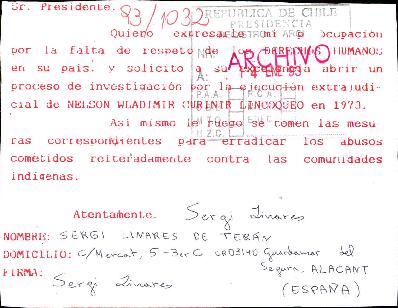 Sr. Presidente.
93/1032
REPUBLICA DE CHILE
PRESIDENCIA
REGISTRO Y ARCHIVO
NR.
ARCHIVO
A:
14 ENE 93
P.A.A.
R.C.A.
M.Z.C.
Quiero expresarle mi preocupación
por la falta de respeto de los DERECHOS HUMANOS
en su pais, y solicito a su excelencia abrir un
proceso de investigación por la ejecución extrajudi-
cial de NELSON WLADIMIR CURIÑIR LINCOQUEO en 1973.
Asi mismo le ruego se tomen las medi
ras correspondientes para erradicar los abusos
cometidos reiteradamente contra las comunidades
indigenas.
Atentamente. Sergi Linares
NOMBRE: SERGI LINARES DE TERÁN
DOMICILIO: C/Mercat, 5-3er C 03140 Guardamar del
Segura. ALACANT
FIRMA: Sergi Linares (ESPAÑA)